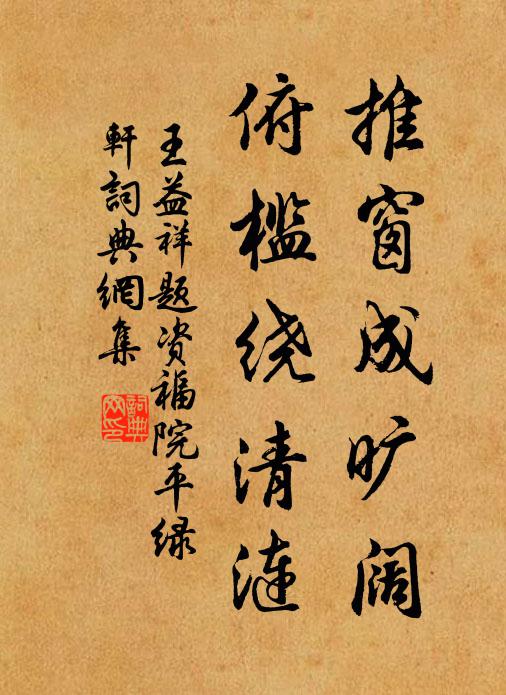 推窗成旷阔
俯槛绕清涟
王益祥题资福院平绿
軒詞典網集
詞典
网印